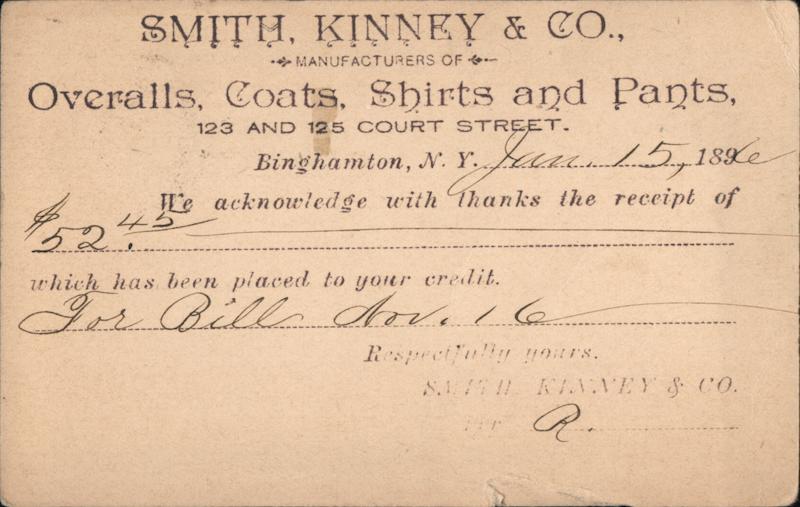 SMITH, KINNEY & CO.,
MANUFACTURERS OF
Overalls, Coats, Shirts and Pants,
123 AND 125 COURT STREET.
Binghamton, N. Y. Jan. 15, 1896
We acknowledge with thanks the receipt of
$52.45
which has been placed to your credit.
For Bill Nov. 16
Respectfully yours,
SMITH, KINNEY & CO.
Per R.